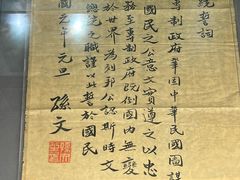 統誓詞
專制政府鞏固中華民國圖謀
國民之公意文實遵之以忠
務至專制政府既倒國内無變
於世界為列邦公認斯時文
總統之職謹以此誓於國民
國元年元旦
孫文